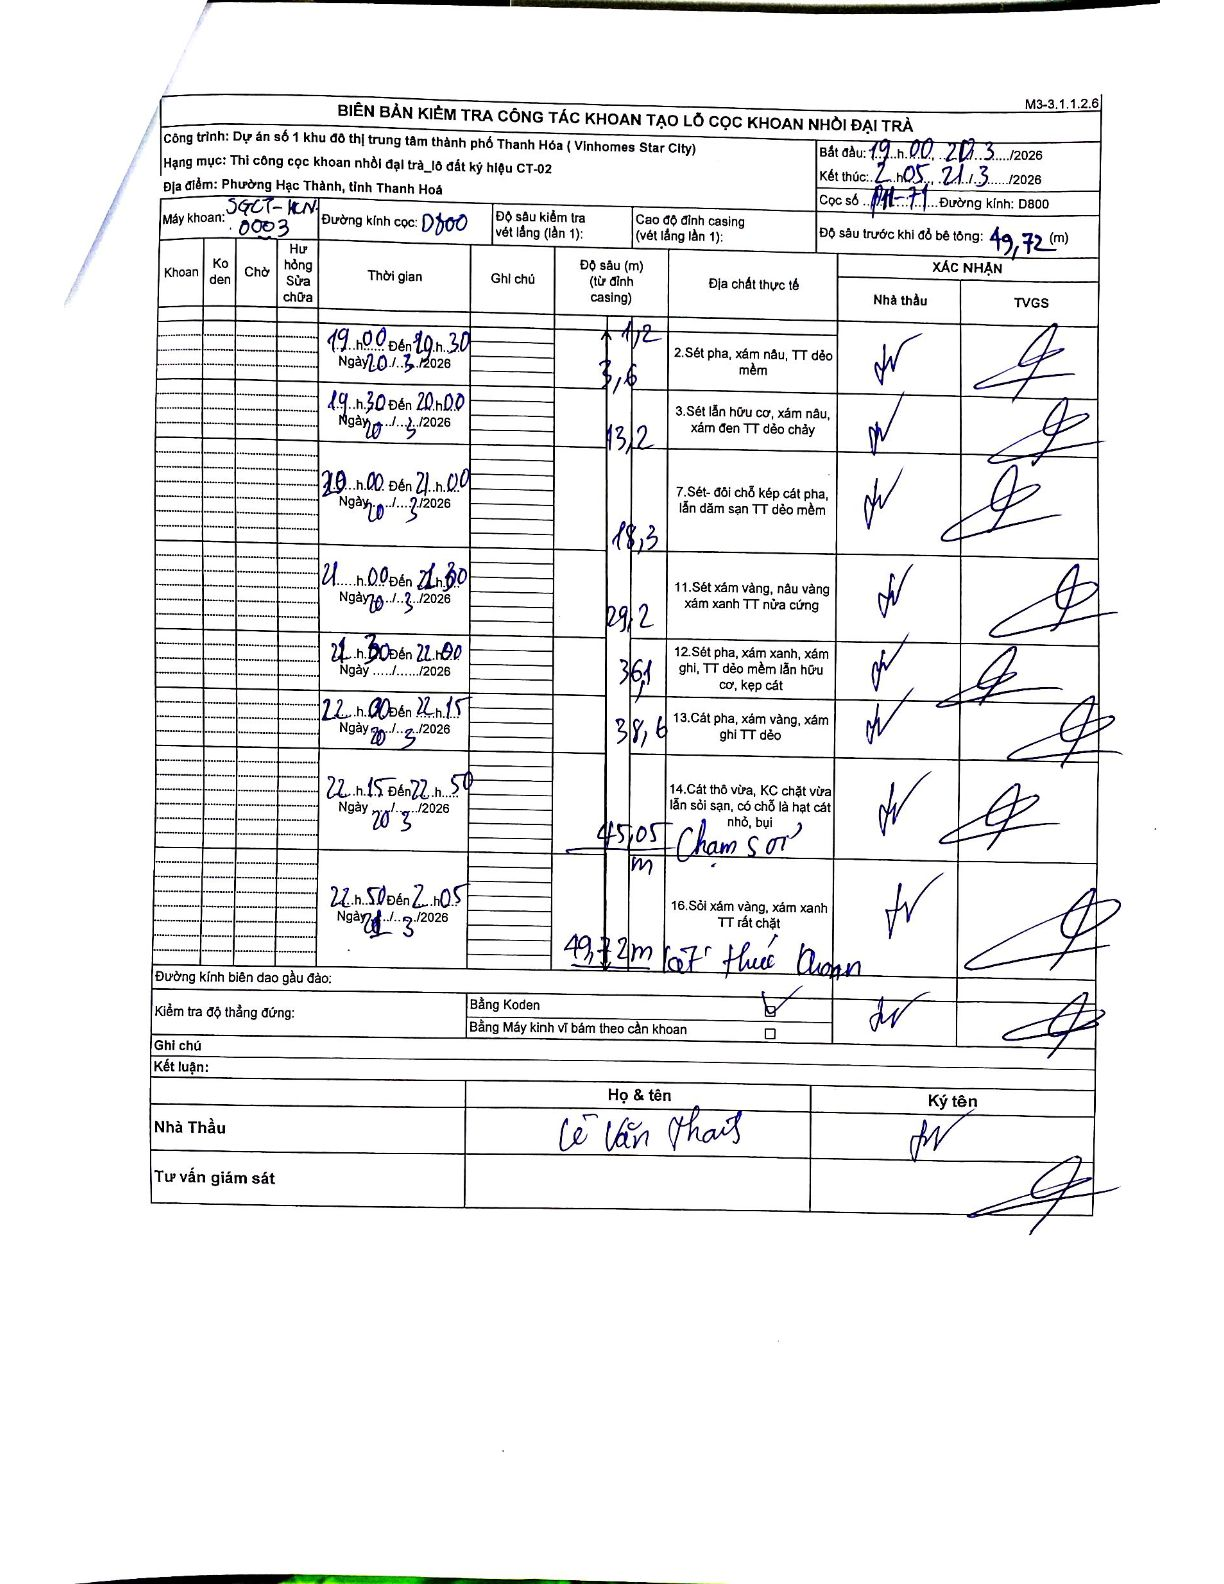 M3-3.1.1.2.6
BIÊN BẢN KIỂM TRA CÔNG TÁC KHOAN TẠO LỖ CỌC KHOAN NHỒI ĐẠI TRÀ
Công trình: Dự án số 1 khu đô thị trung tâm thành phố Thanh Hóa ( Vinhomes Star City)
Hạng mục: Thi công cọc khoan nhồi đại trà_lô đất ký hiệu CT-02
Địa điểm: Phường Hạc Thành, tỉnh Thanh Hoá
Bắt đầu: 19 h 00, 20/3/2026
Kết thúc: 2 h 05, 21/3/2026
Cọc số Đường kính: D800
Máy khoan: 0003
Đường kính cọc: D800
Độ sâu kiểm tra vét lắng (lần 1):
Cao độ đỉnh casing (vét lắng lần 1):
Độ sâu trước khi đổ bê tông: 49,72 (m)
Khoan Ko den Chờ Hư hỏng Sửa chữa Thời gian Ghi chú Độ sâu (m) (từ đỉnh casing) Địa chất thực tế XÁC NHẬN
Nhà thầu TVGS
1,2
19 h 00 Đến 19 h 30
Ngày 20/3/2026
2.Sét pha, xám nâu, TT dẻo mềm
3,6
19 h 30 Đến 20 h 00
Ngày 20/3/2026
3.Sét lẫn hữu cơ, xám nâu, xám đen TT dẻo chảy
13,2
20 h 00 Đến 21 h 00
Ngày 20/3/2026
7.Sét- đôi chỗ kép cát pha, lẫn dăm sạn TT dẻo mềm
18,3
21 h 00 Đến 21 h 30
Ngày 20/3/2026
11.Sét xám vàng, nâu vàng xám xanh TT nửa cứng
29,2
21 h 30 Đến 22 h 00
Ngày ...../....../2026
12.Sét pha, xám xanh, xám ghi, TT dẻo mềm lẫn hữu cơ, kẹp cát
36,1
22 h 00 Đến 22 h 15
Ngày 20/3/2026
13.Cát pha, xám vàng, xám ghi TT dẻo
38,6
22 h 15 Đến 22 h 50
Ngày 20/3/2026
14.Cát thô vừa, KC chặt vừa lẫn sỏi sạn, có chỗ là hạt cát nhỏ, bụi
45,05 m Chạm sỏi
22 h 50 Đến 2 h 05
Ngày 21/3/2026
16.Sỏi xám vàng, xám xanh TT rất chặt
49,72m kết thúc khoan
Đường kính biên dao gầu đào:
Kiểm tra độ thẳng đứng:
Bằng Koden
Bằng Máy kinh vĩ bám theo cần khoan
Ghi chú
Kết luận:
Họ & tên Ký tên
Nhà Thầu Lê Văn
Tư vấn giám sát